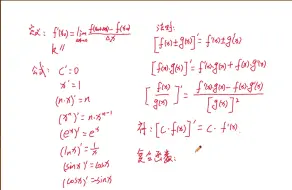 定义: f'(x₀)=lim Δx→0 f(x₀+Δx)-f(x₀) / Δx
k//
公式: C'=0
x'=1
(n·x)'=n
(xⁿ)'=n·xⁿ⁻¹
(eˣ)'=eˣ
(lnx)'=1/x
(sinx)'=cosx
(cosx)'=-sinx
法则:
[f(x)±g(x)]'=f'(x)±g'(x)
[f(x)·g(x)]'=f'(x)·g(x)+f(x)·g'(x)
[f(x)/g(x)]'=f'(x)·g(x)-f(x)·g'(x) / [g(x)]²
符:[C·f(x)]'=C·f'(x)
复合函数: